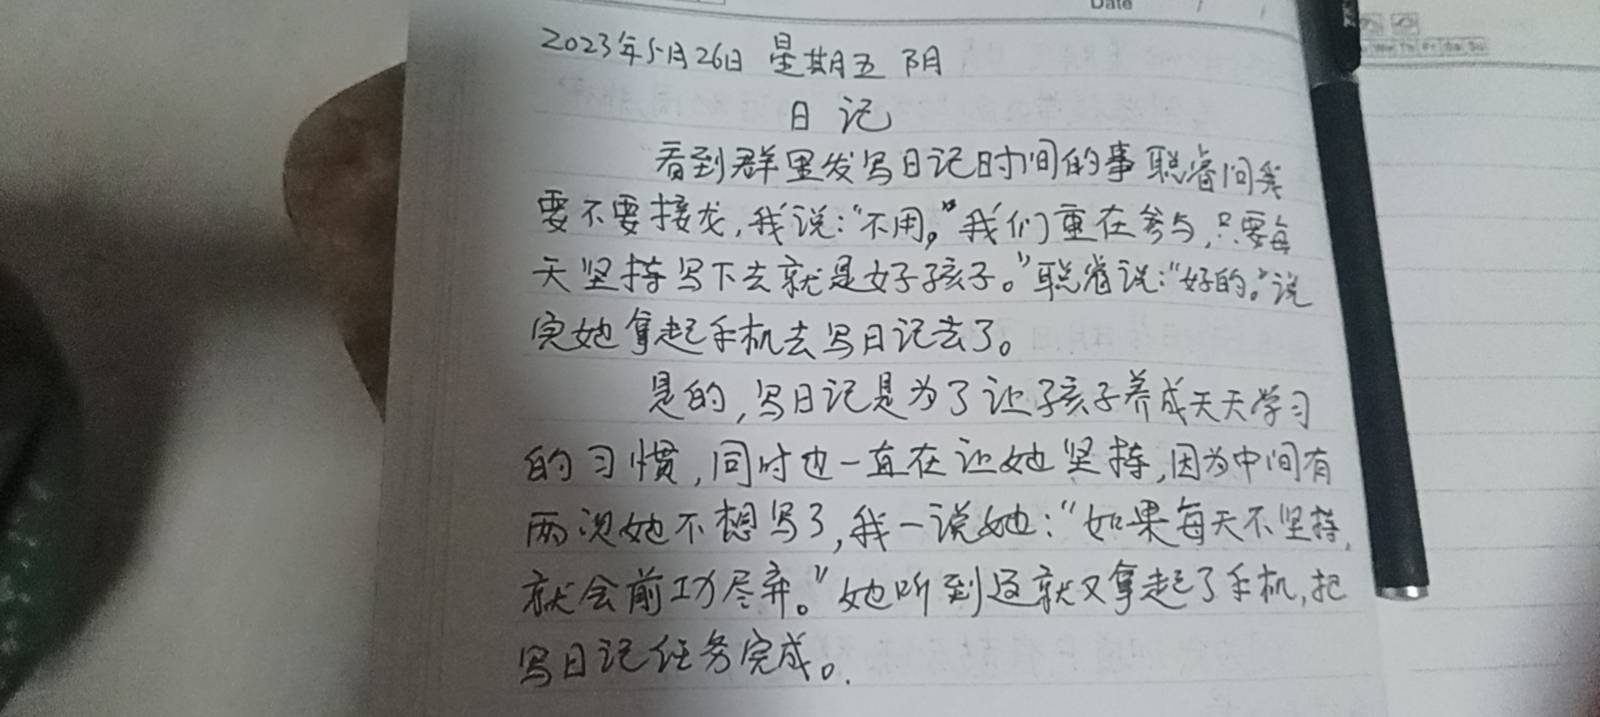 Date
2023年5月26日 星期五 阴
日记
看到群里发写日记时间的事聪睿问我
要不要接龙,我说:“不用。”我们重在参与,只要每
天坚持写下去就是好孩子。”聪睿说:“好的。”说
完她拿起手机去写日记去了。
是的,写日记是为了让孩子养成天天学习
的习惯,同时也一直在让她坚持,因为中间有
两次她不想写了,我一说她:“如果每天不坚持,
就会前功尽弃。”她听到这就又拿起了手机,把
写日记任务完成。